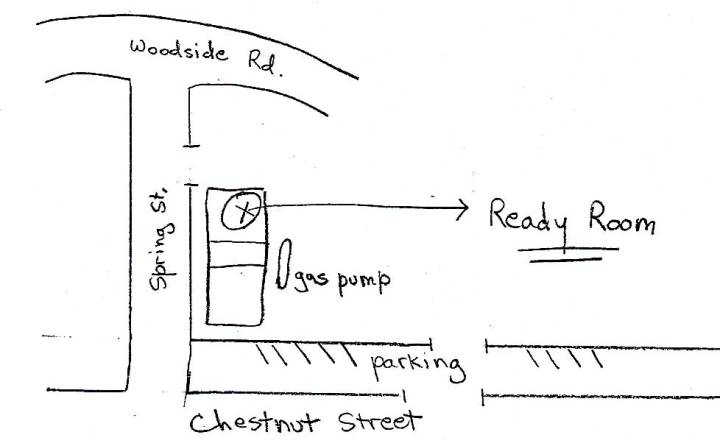 Woodside Rd.
Spring St.
X
Ready Room
gas pump
parking
Chestnut Street